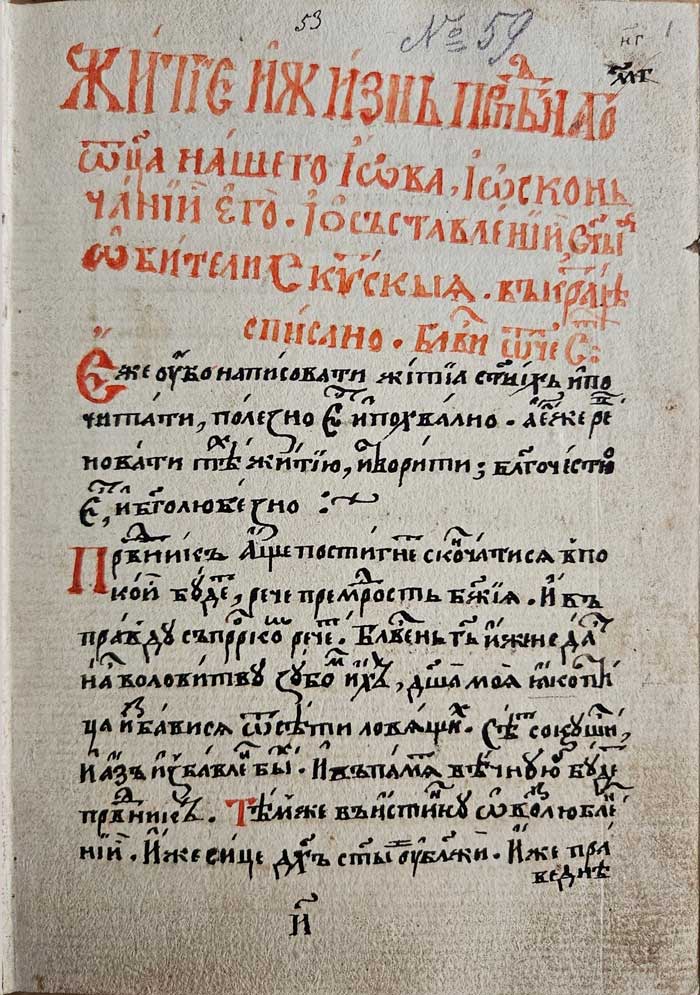 53
№ 59
нг
1
҂мг
Житїе и҆ жизнь прпⷣбнаго
ѿца̀ на́шего І҆ѡ́ва, І҆ ѡ҆ скон
ча́нїи є҆гѡ̀. І҆ ѡ҆ съставле́нїи ст҃ыѧ
ѡ҆би́тели Ску́скыѧ. въкра́тцѣ
спи́сано. Бл҃ви ѿче
Є҆́же ᲂу҆́бо написовати житїѧ ст҃ы́хъ и҆ по
чита́ти, поле́зно є҆́сть и҆ похва́лно. а҆ є҆́же ре
новати тѣⷯ житїю, и҆ твори́ти; бл҃гоче́стно
є҆́сть, и҆ бг҃олюбе́зно :~
Пра́вⷣникъ а҆́ще пости́гнеⷮ сконча́тисѧ в по
ко́и бу́деⷮ, рече прему́дⷭ҇рость бж҃їѧ. И҆ въ
пра́вду съ прⷪ҇ро́ко рече́ⷮ. Бл҃ве́нъ гдⷭ҇ь и҆́же не да́стъ
на́съ в лови́тву зубо́мъ и҆́хъ, дш҃а̀ моѧ̀ ꙗ҆́ко пти́
ца и҆зба́висѧ ѿ сѣ́ти ловѧ́щиⷯ. Сѣ́ть сокруши́,
и҆ а҆́зъ и҆зба́вленъ бы́хъ. И҆ въ па́мѧть вѣ́чную бу́деⷮ
пра́вⷣникъ. Тѣ́мже въ и҆́стинну ѡ҆ възлю́бле
нїи. И҆́же си́це дх҃ъ ст҃ы́й ᲂу҆блажи́. И҆́же пра
веднѣ
и҃